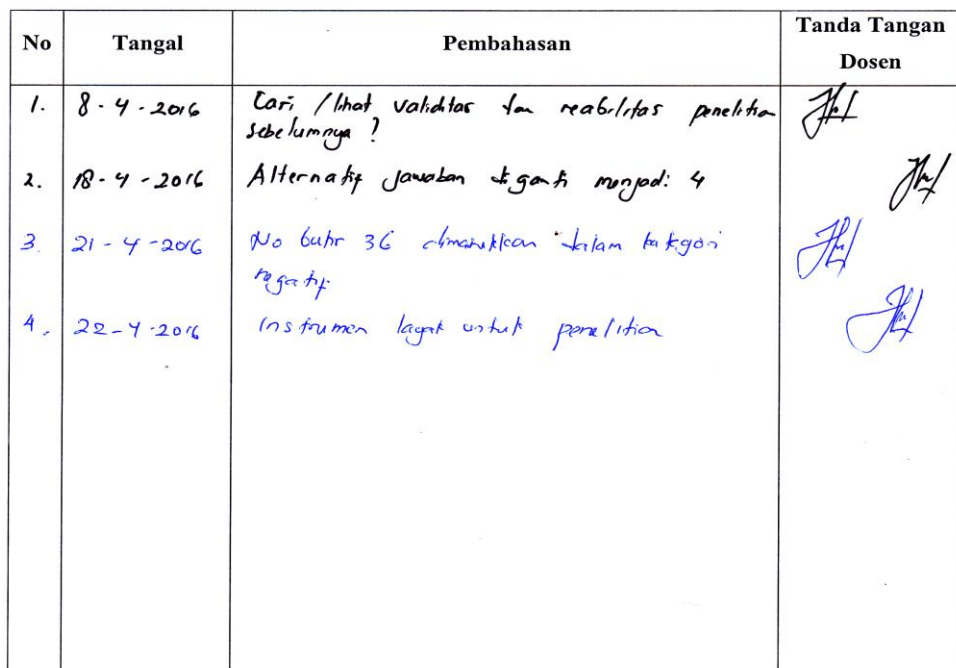 No Tangal Pembahasan Tanda Tangan Dosen
1. 8-4-2016 Cari / lihat validitas dan reabilitas penelitian
sebelumnya ?
2. 18-4-2016 Alternatif jawaban diganti menjadi 4
3. 21-4-2016 No butir 36 dimasukkan dalam kategori
negatif
4. 22-4-2016 Instrumen layak untuk penelitian